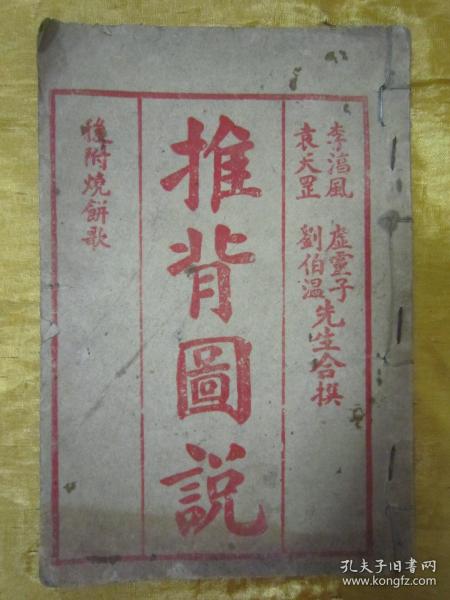 李淳風 虛靈子
袁天罡 劉伯溫
先生合撰
推背圖説
後附燒餅歌
孔夫子旧书网
www.kongfz.com